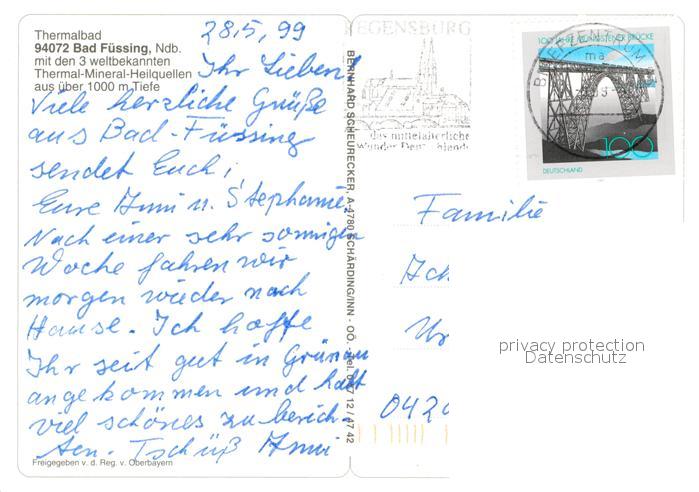 28.5.99
Thermalbad
94072 Bad Füssing, Ndb.
mit den 3 weltbekannten
Thermal-Mineral-Heilquellen
aus über 1000 m Tiefe
Ihr Lieben!
Viele herzliche Grüße
aus Bad-Füssing
sendet Euch,
Eure Anni u. Stephanie.
Nach einer sehr sonnigen
Woche fahren wir
morgen wieder nach
Hause. Ich hoffe
Ihr seit gut in Grünau
angekommen und habt
viel schönes zu berich-
ten. Tschüß Anni
Freigegeben v. d. Reg. v. Oberbayern
BERNHARD SCHEURECKER, A-4780 SCHÄRDING/INN - OÖ. Tel. 0 77 12 / 47 42
REGENSBURG
das mittelalterliche
Wunder Deutschlands
BRIEFZENTRUM
100 JAHRE MÜNGSTENER BRÜCKE
100
DEUTSCHLAND
Familie
privacy protection
Datenschutz
042